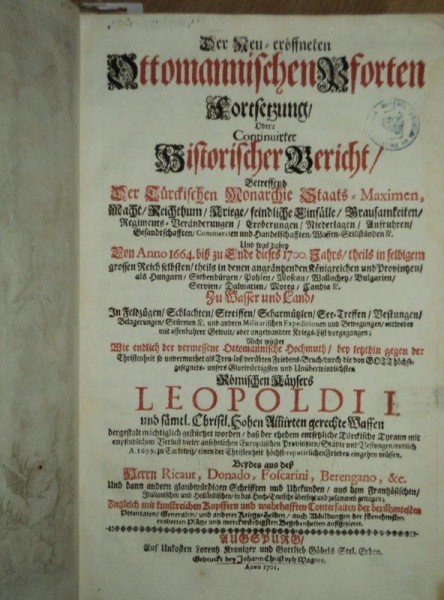 Der Neu-eröffneten
Ottomannischen Pforten
Fortsetzung/
Oder:
Continuirter
Historischer Bericht/
Betreffend
Der Türckischen Monarchie Staats-Maximen,
Macht/ Reichthum/ Kriege/ feindliche Einfälle/ Grausamkeiten/
Regiments-Veränderungen/ Eroberungen/ Niederlagen/ Aufruhren/
Gesandtschafften/ Commercien und Handelschafften/ Waffen-Stillständen &c.
Und was dabey
Von Anno 1664. biß zu Ende dieses 1700. Jahrs/ theils in selbigem
grossen Reich selbsten/ theils in denen angräntzenden Königreichen und Provintzen/
als Hungarn/ Siebenbürgen/ Pohlen/ Moscau/ Wallachey/ Bulgarien/
Servien/ Dalmatien/ Morea/ Candia &c.
Zu Wasser und Land/
In Feldzügen/ Schlachten/ Streiffen/ Scharmützlen/ See-Treffen/ Vestungen/
Belagerungen/ Stürmen &c. und andern Militarischen Expeditionen und Bewegungen/ entweder
mit offenbahrer Gewalt/ oder angewandter Kriegs-List vorgegangen:
Nicht weniger
Wie endlich der vermessene Ottomannische Hochmuth/ bey letzthin gegen der
Christenheit so unvermuthet als Treu-loß verübten Friedens-Bruch/ durch die von GOTT höchst-
gesegnete unsers Glorwürdigsten und Unüberwindlichsten
Römischen Käysers
LEOPOLDI I.
und sämtl. Christl. Hohen Alliirten gerechte Waffen
dergestalt mächtiglich gestürtzet worden/ daß der ehedem entsetzliche Türckische Tyrann mit
empfindlichem Verlust vieler ansehnlichen Europäischen Provintzien/ Städte und Vestungen/ endlich
A. 1699. zu Carlowitz/ einen der Christenheit höchst-reputirlichen Frieden eingehen müssen.
Beydes aus deß
Herrn Ricaut, Donado, Foscarini, Berengano, &c.
Und dann andern glaubwürdigen Schrifften und Uhrkunden/ aus dem Frantzösischen/
Italiänischen und Holländischen/ in das Hoch-Teutsche übersetzt und zusammen getragen;
Zugleich mit kunstreichen Kupffern und wahrhafften Conterfaiten der berühmtesten
Potentaten/ Generalen/ und anderer Kriegs-Helden/ auch Abbildungen der fürnehmsten
eroberten Plätze und merckwürdigsten Begebenheiten außgezieret.
AUGSPURG/
Auf Unkosten Lorentz Kroniger und Gottlieb Göbels Seel. Erben.
Gedruckt bey Johann Christoph Wagner.
Anno 1701.